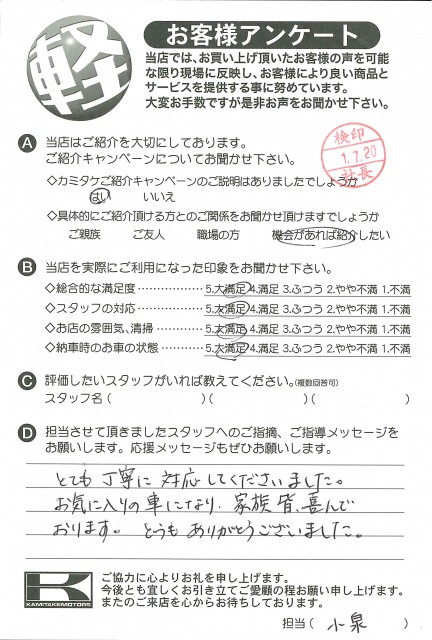 軽
お客様アンケート
当店では、お買い上げ頂いたお客様の声を可能
な限り現場に反映し、お客様により良い商品と
サービスを提供する事に努めています。
大変お手数ですが是非お声をお聞かせ下さい。
検印
1.7.20
社長
A 当店はご紹介を大切にしております。
ご紹介キャンペーンについてお聞かせ下さい。
◇カミタケご紹介キャンペーンのご説明はありましたでしょうか
はい いいえ
◇具体的にご紹介頂ける方とのご関係をお聞かせ頂けますでしょうか
ご親族 ご友人 職場の方 機会があれば紹介したい
B 当店を実際にご利用になった印象をお聞かせ下さい。
◇総合的な満足度……………5.大満足 4.満足 3.ふつう 2.やや不満 1.不満
◇スタッフの対応……………5.大満足 4.満足 3.ふつう 2.やや不満 1.不満
◇お店の雰囲気、清掃………5.大満足 4.満足 3.ふつう 2.やや不満 1.不満
◇納車時のお車の状態………5.大満足 4.満足 3.ふつう 2.やや不満 1.不満
C 評価したいスタッフがいれば教えてください。(複数回答可)
スタッフ名( )( )( )
D 担当させて頂きましたスタッフへのご指摘、ご指導メッセージを
お願いします。応援メッセージもぜひお願いします。
とても丁寧に対応してくださいました。
お気に入りの車になり、家族皆、喜んで
おります。どうもありがとうございました。
K
KAMITAKEMOTORS
ご協力に心よりお礼を申し上げます。
今後とも宜しくお引き立てご愛顧の程お願い申し上げます。
またのご来店を心からお待ちしております。
担当( 小泉 )